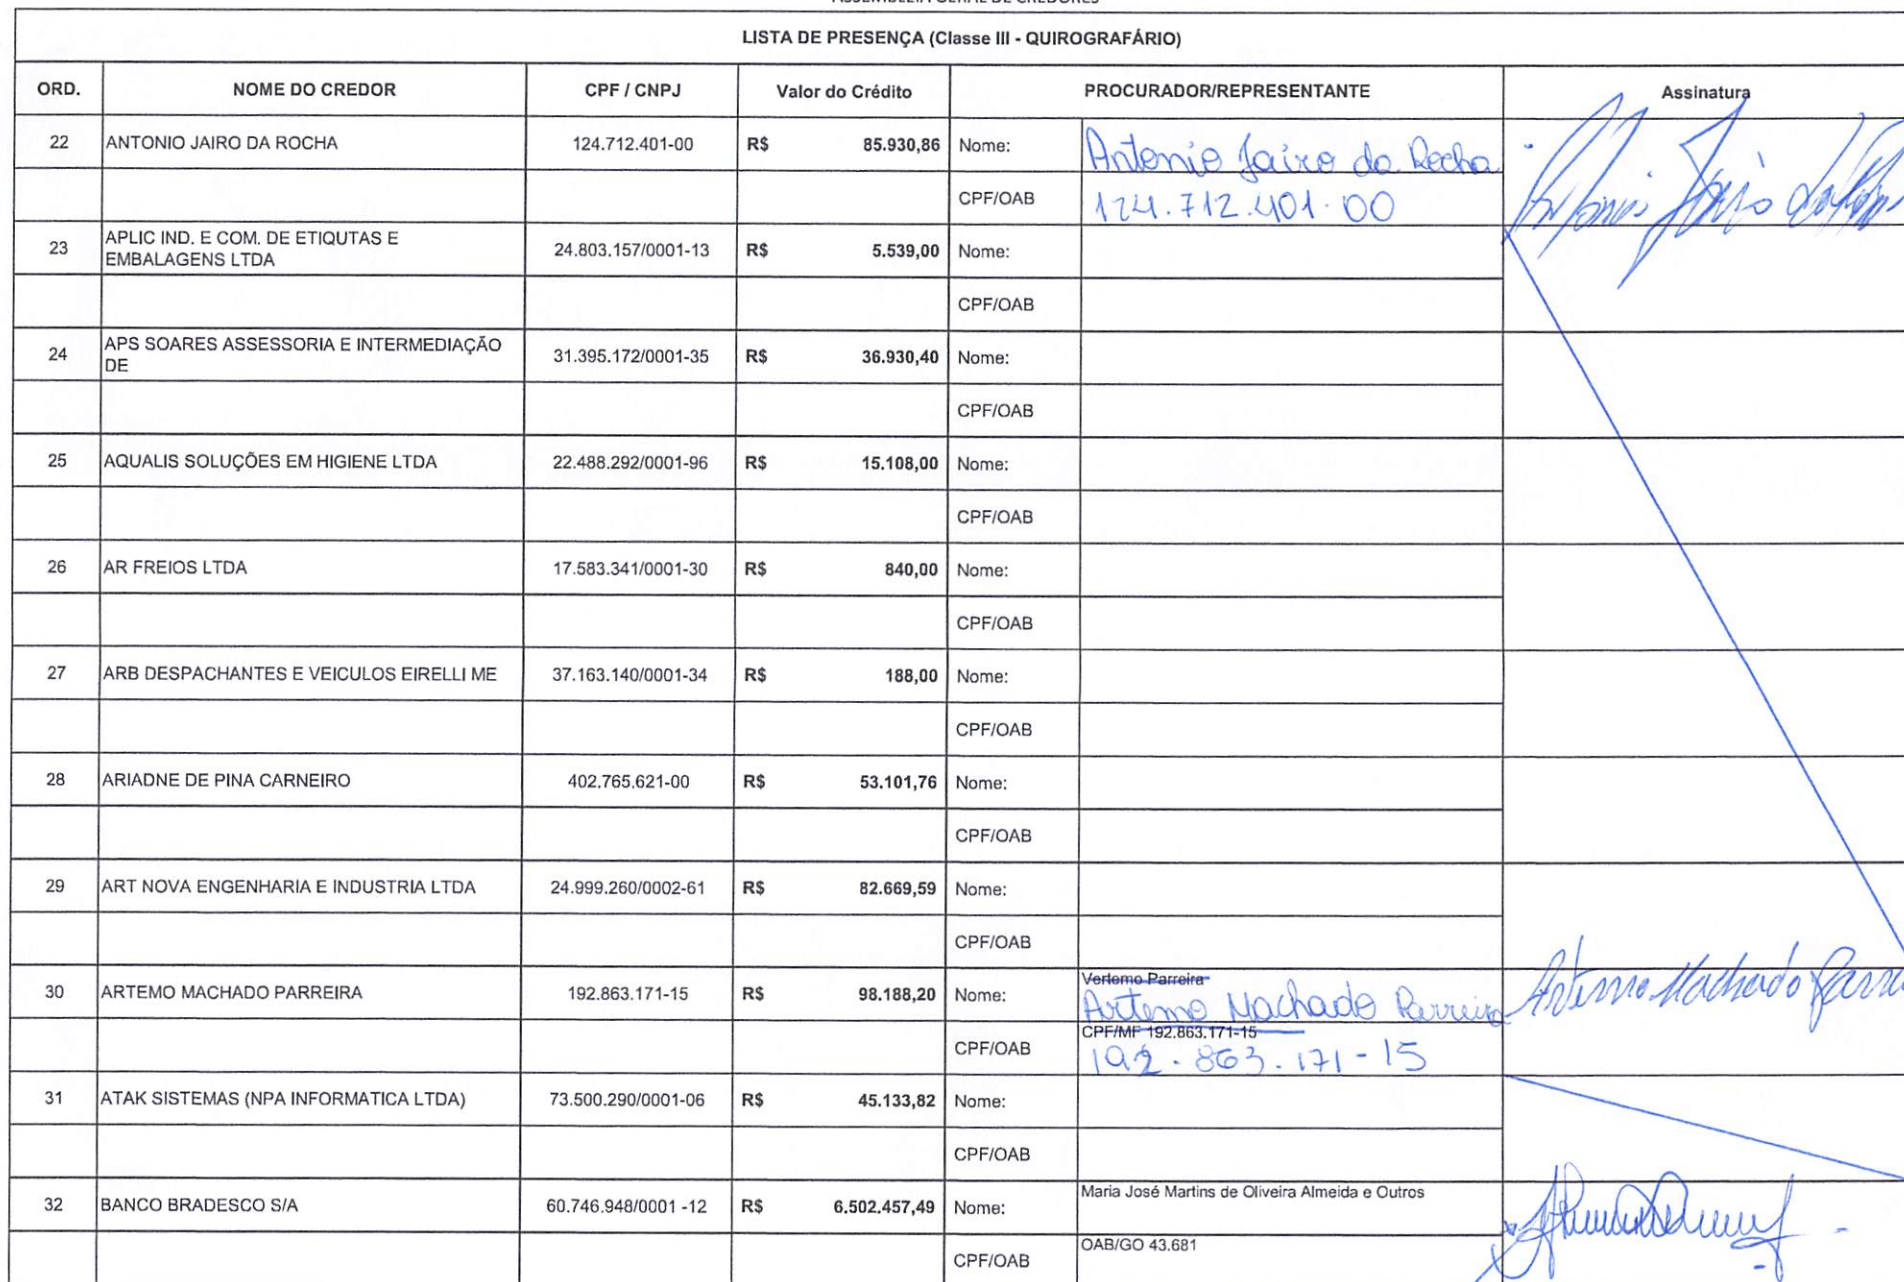 ASSEMBLEIA GERAL DE CREDORES
LISTA DE PRESENÇA (Classe III - QUIROGRAFÁRIO)
ORD. NOME DO CREDOR CPF / CNPJ Valor do Crédito PROCURADOR/REPRESENTANTE Assinatura
22 ANTONIO JAIRO DA ROCHA 124.712.401-00 R$ 85.930,86 Nome: Antonio Jairo da Rocha
CPF/OAB 124.712.401-00
23 APLIC IND. E COM. DE ETIQUTAS E
EMBALAGENS LTDA 24.803.157/0001-13 R$ 5.539,00 Nome:
CPF/OAB
24 APS SOARES ASSESSORIA E INTERMEDIAÇÃO
DE 31.395.172/0001-35 R$ 36.930,40 Nome:
CPF/OAB
25 AQUALIS SOLUÇÕES EM HIGIENE LTDA 22.488.292/0001-96 R$ 15.108,00 Nome:
CPF/OAB
26 AR FREIOS LTDA 17.583.341/0001-30 R$ 840,00 Nome:
CPF/OAB
27 ARB DESPACHANTES E VEICULOS EIRELLI ME 37.163.140/0001-34 R$ 188,00 Nome:
CPF/OAB
28 ARIADNE DE PINA CARNEIRO 402.765.621-00 R$ 53.101,76 Nome:
CPF/OAB
29 ART NOVA ENGENHARIA E INDUSTRIA LTDA 24.999.260/0002-61 R$ 82.669,59 Nome:
CPF/OAB
Vertemo Parreira
30 ARTEMO MACHADO PARREIRA 192.863.171-15 R$ 98.188,20 Nome: Artemo Machado Parreira Artemo Machado
CPF/MF 192.863.171-15
CPF/OAB 192.863.171-15
31 ATAK SISTEMAS (NPA INFORMATICA LTDA) 73.500.290/0001-06 R$ 45.133,82 Nome:
CPF/OAB
32 BANCO BRADESCO S/A 60.746.948/0001 -12 R$ 6.502.457,49 Nome: Maria José Martins de Oliveira Almeida e Outros
CPF/OAB OAB/GO 43.681